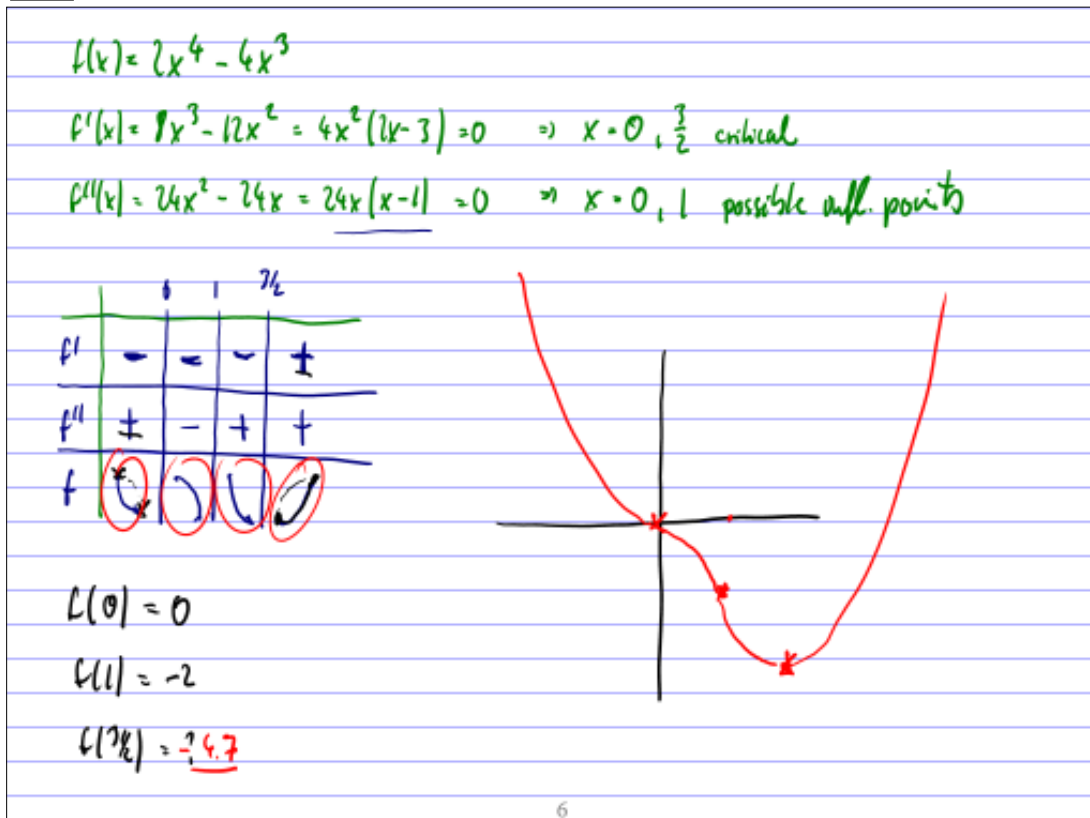 f(x) = 2x⁴ - 4x³
f'(x) = 8x³ - 12x² = 4x²(2x-3) = 0 ⇒ x = 0, 3/2 critical
f''(x) = 24x² - 24x = 24x(x-1) = 0 ⇒ x = 0, 1 possible infl. points
0 1 3/2
f' - - - +
f'' + - + +
f
f(0) = 0
f(1) = -2
f(3/2) = -4.7
6